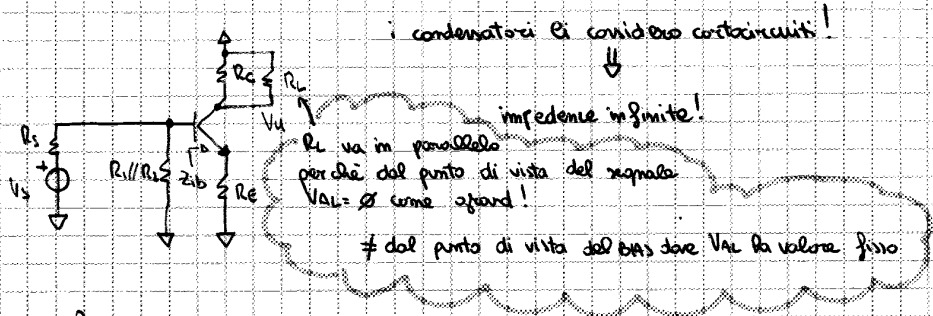 i condensatori li considero cortocircuiti!
⇓
impedenze infinite!
RC
RL
Vu
RS
R1//R2
Zib
RE
VS
+
RL va in parallelo
perchè dal punto di vista del segnale
VAL = ∅ come ground!
≠ dal punto di vista del BIAS dove VAL ha valore fisso